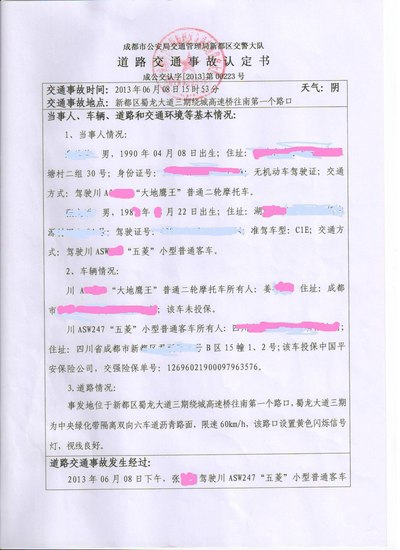 成都市公安局交通管理局新都区交警大队
道路交通事故认定书
成公交认字[2013]第00223号
交通事故时间：2013年06月08日15时53分 天气：阴
交通事故地点：新都区蜀龙大道三期绕城高速桥往南第一个路口
当事人、车辆、道路和交通环境等基本情况：
1、当事人情况：
男，1990年04月08日出生；住址：
塘村二组30号；身份证号： 无机动车驾驶证；交通
方式：驾驶川A “大地鹰王”普通二轮摩托车。
男，198 年 月22日出生；住址：湖
驾驶证号： 准驾车型：C1E；交通
方式：驾驶川ASW “五菱”小型普通客车。
2、车辆情况：
川A “大地鹰王”普通二轮摩托车所有人：姜 住址：成都
市 该车未投保。
川ASW247“五菱”小型普通客车所有人：
住址：四川省成都市新都区 号B区15幢1、2号；该车投保中国平
安保险公司，交强险保单号：12696021900097963576。
3.道路情况：
事发地位于新都区蜀龙大道三期绕城高速桥往南第一个路口，蜀龙大道三期
为中央绿化带隔离双向六车道沥青路面，限速60km/h，该路口设置黄色闪烁信号
灯，视线良好。
道路交通事故发生经过：
2013年06月08日下午，张 驾驶川ASW247“五菱”小型普通客车